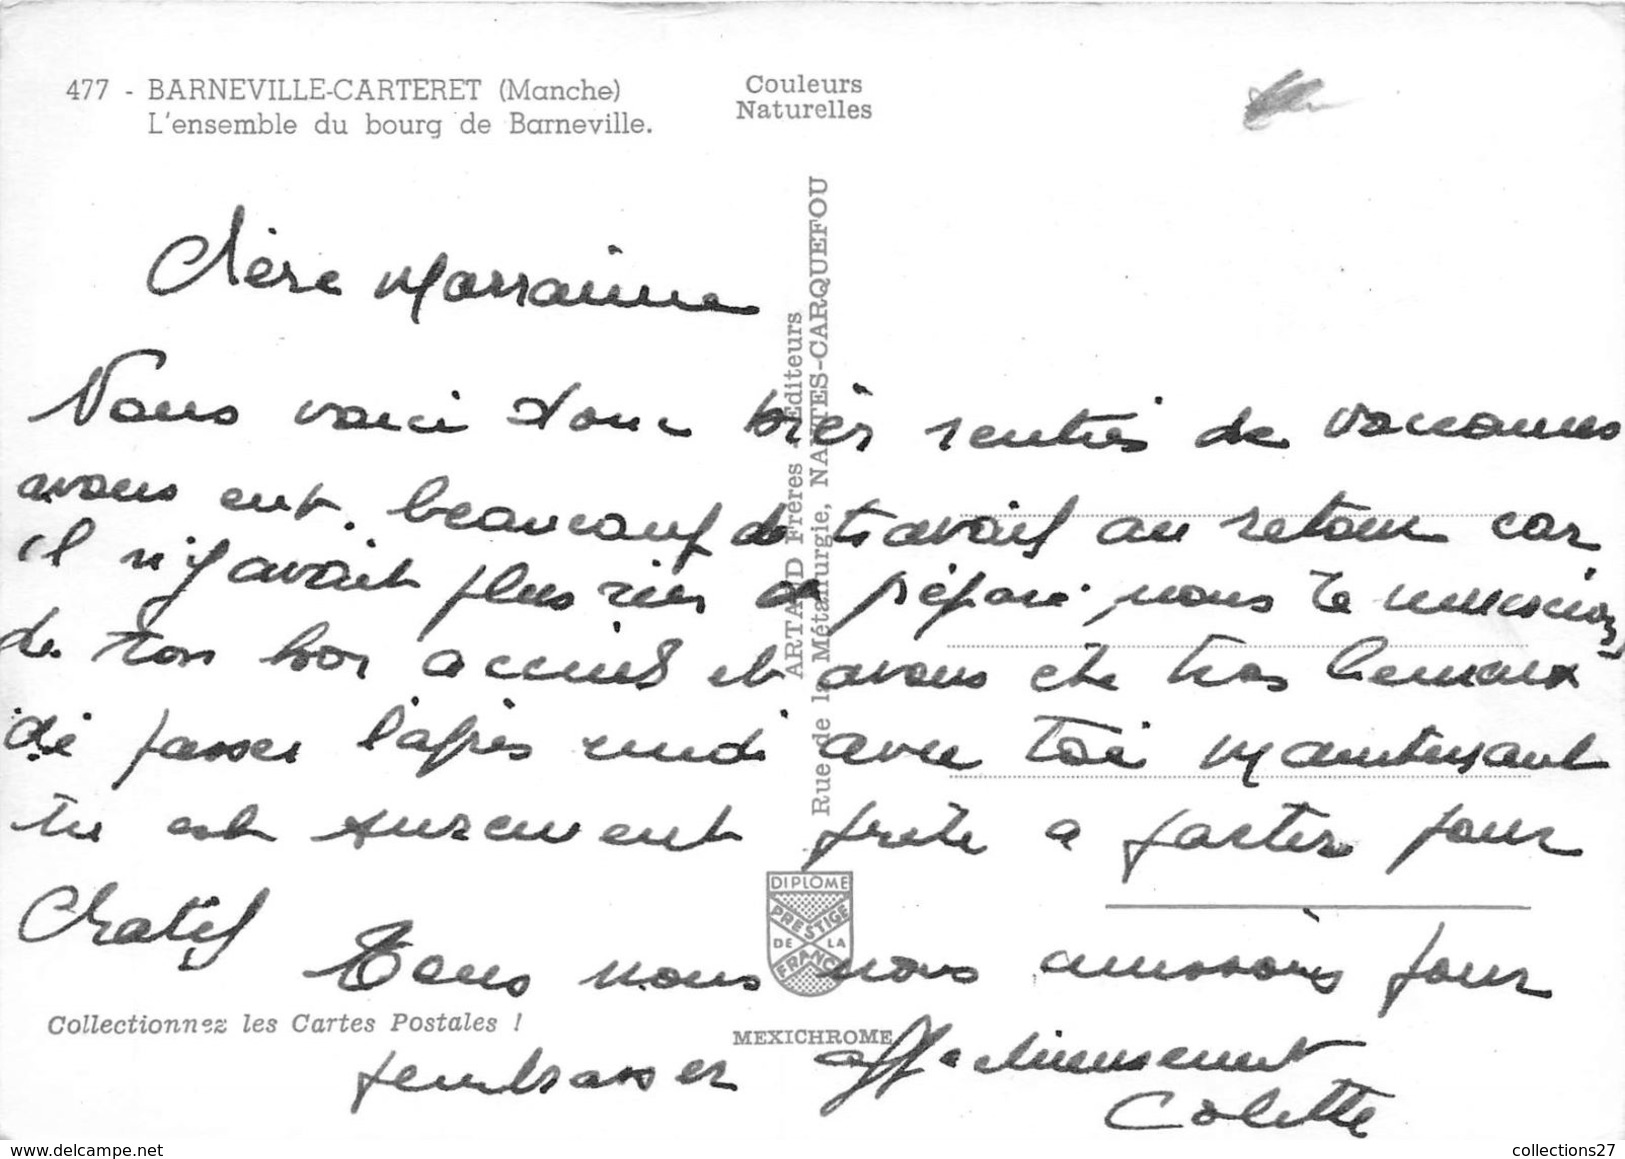 477 - BARNEVILLE-CARTERET (Manche)
L'ensemble du bourg de Barneville.
Couleurs
Naturelles
Chère Marraine
Nous voici donc bien rentrés de vaccances
avons eut beaucoup de travail au retour car
il n'y avait plus rien de préparé nous te remercions
de ton bon acceuil et avons été tras heureux
de passer l'après midi avec toi maintenant
tu est surement prête a partir pour
Chatel
Tous nous nous unissons pour
t'embrasser affectueusement
Colette
ARTAUD Frères - Éditeurs
Rue de la Métallurgie, NANTES-CARQUEFOU
DIPLOME
PRESTIGE
DE LA
FRANCE
Collectionnez les Cartes Postales !
MEXICHROME
collections27